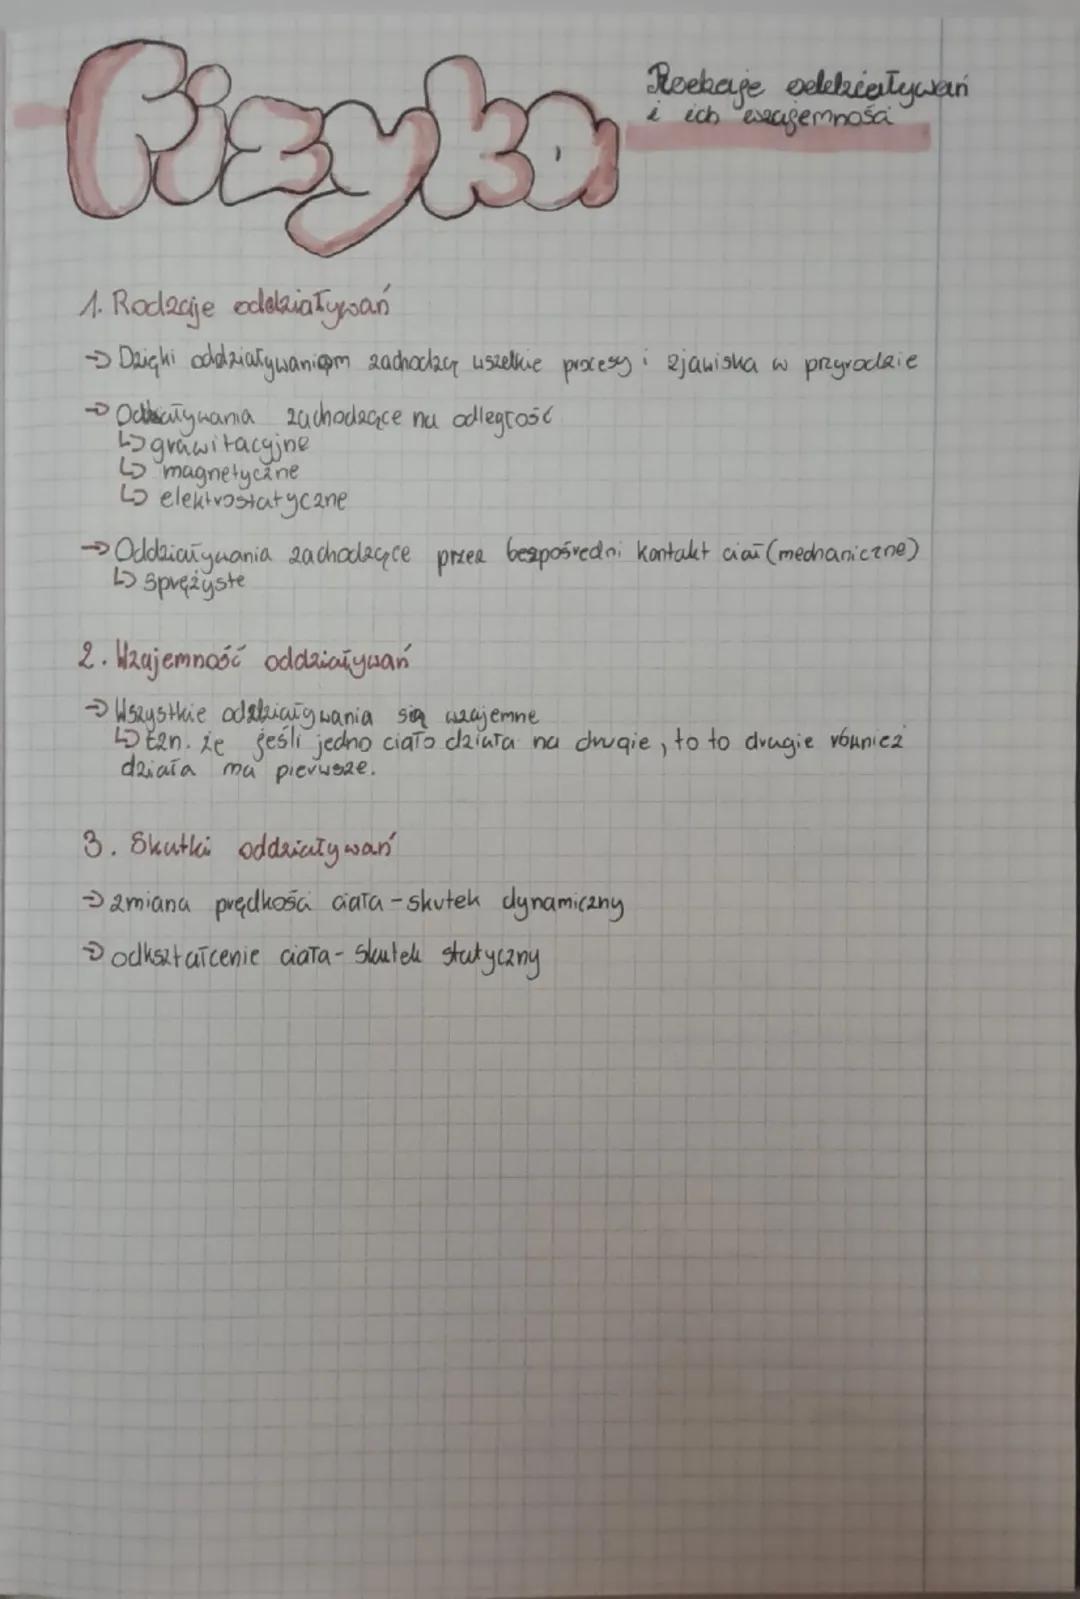 Fizyka
Rodzaje oddziaływań
i ich wzajemności
1. Rodzaje oddziaływań
→ Dzięki oddziaływaniom zachodzą wszelkie procesy i zjawiska w przyrodzie
→ Oddziaływania zachodzące na odległość
↳ grawitacyjne
↳ magnetyczne
↳ elektrostatyczne
→ Oddziaływania zachodzące przez bezpośredni kontakt ciał (mechaniczne)
↳ sprężyste
2. Wzajemność oddziaływań
→ Wszystkie oddziaływania są wzajemne
↳ tzn. że jeśli jedno ciało działa na drugie, to to drugie również
działa na pierwsze.
3. Skutki oddziaływań
→ zmiana prędkości ciała - skutek dynamiczny
→ odkształcenie ciała - skutek statyczny